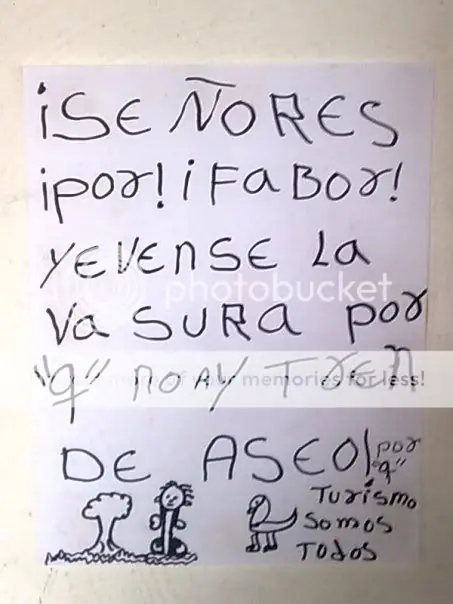 ¡SEÑORES
¡por! ¡FaBor!
YEVENSE La
Va SURa por
"q" no AY Tren
DE ASEO/por
"q"
Turismo
Somos
Todos
photobucket
of your memories for less!